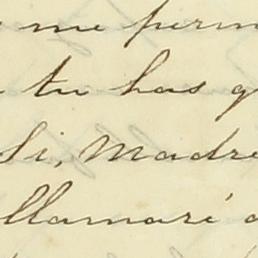 me perm
tu has q
Si, Madre
llamaré a